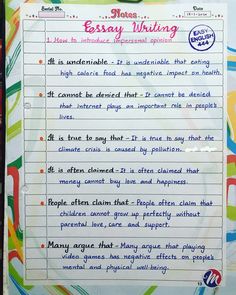 Serial No.
Notes
Date
Essay Writing
1. How to introduce impersonal opinion
EASY ENGLISH 444
It is undeniable - It is undeniable that eating
high calorie food has negative impact on health.
It cannot be denied that - It cannot be denied
that Internet plays an important role in people's
lives.
It is true to say that - It is true to say that the
climate crisis is caused by pollution.
It is often claimed - It is often claimed that
money cannot buy love and happiness.
People often claim that - People often claim that
children cannot grow up perfectly without
parental love, care and support.
Many argue that - Many argue that playing
video games has negative effects on people's
mental and physical well-being.